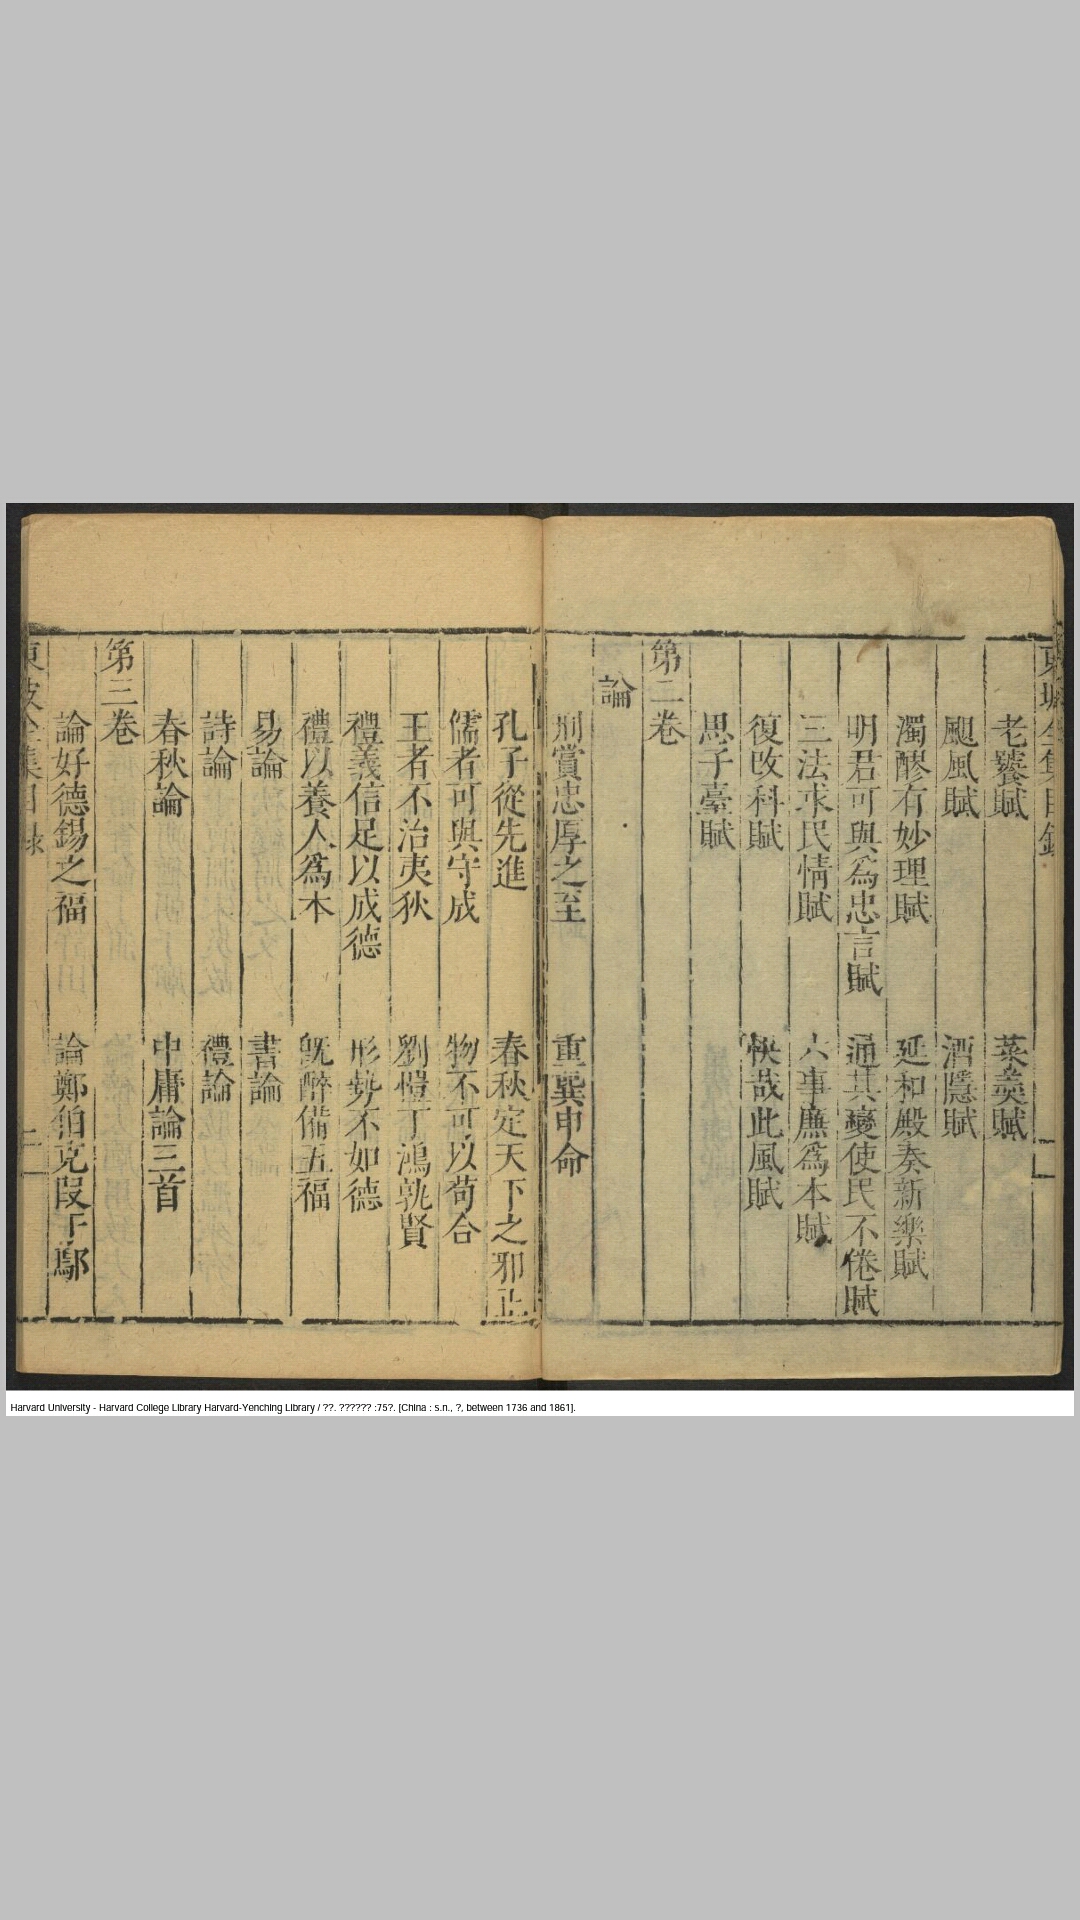 東坡全集目錄
老饕賦 菜羹賦
颶風賦 酒隱賦
濁醪有妙理賦 延和殿奏新樂賦
明君可與爲忠言賦 通其變使民不倦賦
三法求民情賦 六事廉爲本賦
復改科賦 快哉此風賦
思子臺賦
第二卷
論
刑賞忠厚之至 重巽申命
孔子從先進 春秋定天下之邪正
儒者可與守成 物不可以苟合
王者不治夷狄 劉愷丁鴻孰賢
禮義信足以成德 形勢不如德
禮以養人爲本 旣醉備五福
易論 書論
詩論 禮論
春秋論 中庸論三首
第三卷
論好德錫之福 論鄭伯克段于鄢
東坡全集目錄 二
Harvard University - Harvard College Library Harvard-Yenching Library / ??. ?????? :75?. [China : s.n., ?, between 1736 and 1861].